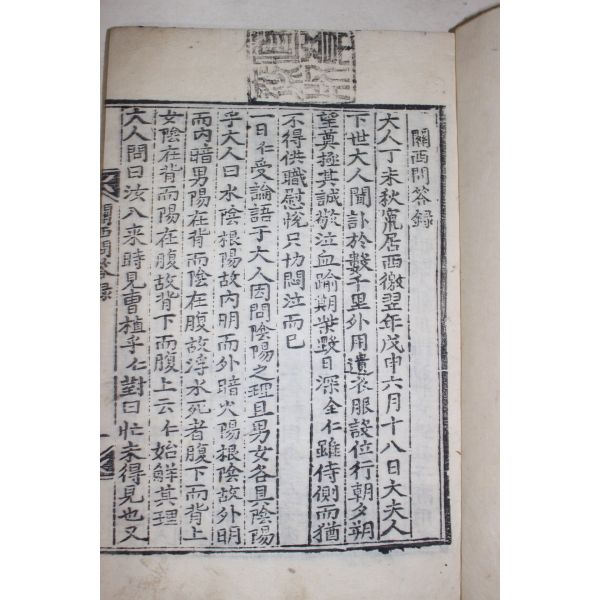 關西問答録
大人丁未秋竄居西徼翌年戊申六月十八日大夫人
下世大人聞訃於數千里外用遺衣服設位行朝夕朔
望奠極其誠敬泣血踰期柴毀日深全仁雖侍側而猶
不得供職慰悅只切悶泣而已
一日仁受論語于大人因問陰陽之理且男女各具陰陽
乎大人曰水陰根陽故內明而外暗火陽根陰故外明
而內暗男陽在背而陰在腹故浮水死者腹下而背上
女陰在背而陽在腹故背下而腹上云仁始觧其理
大人問曰汝入来時見曺植乎仁對曰忙未得見也又
關西問答录